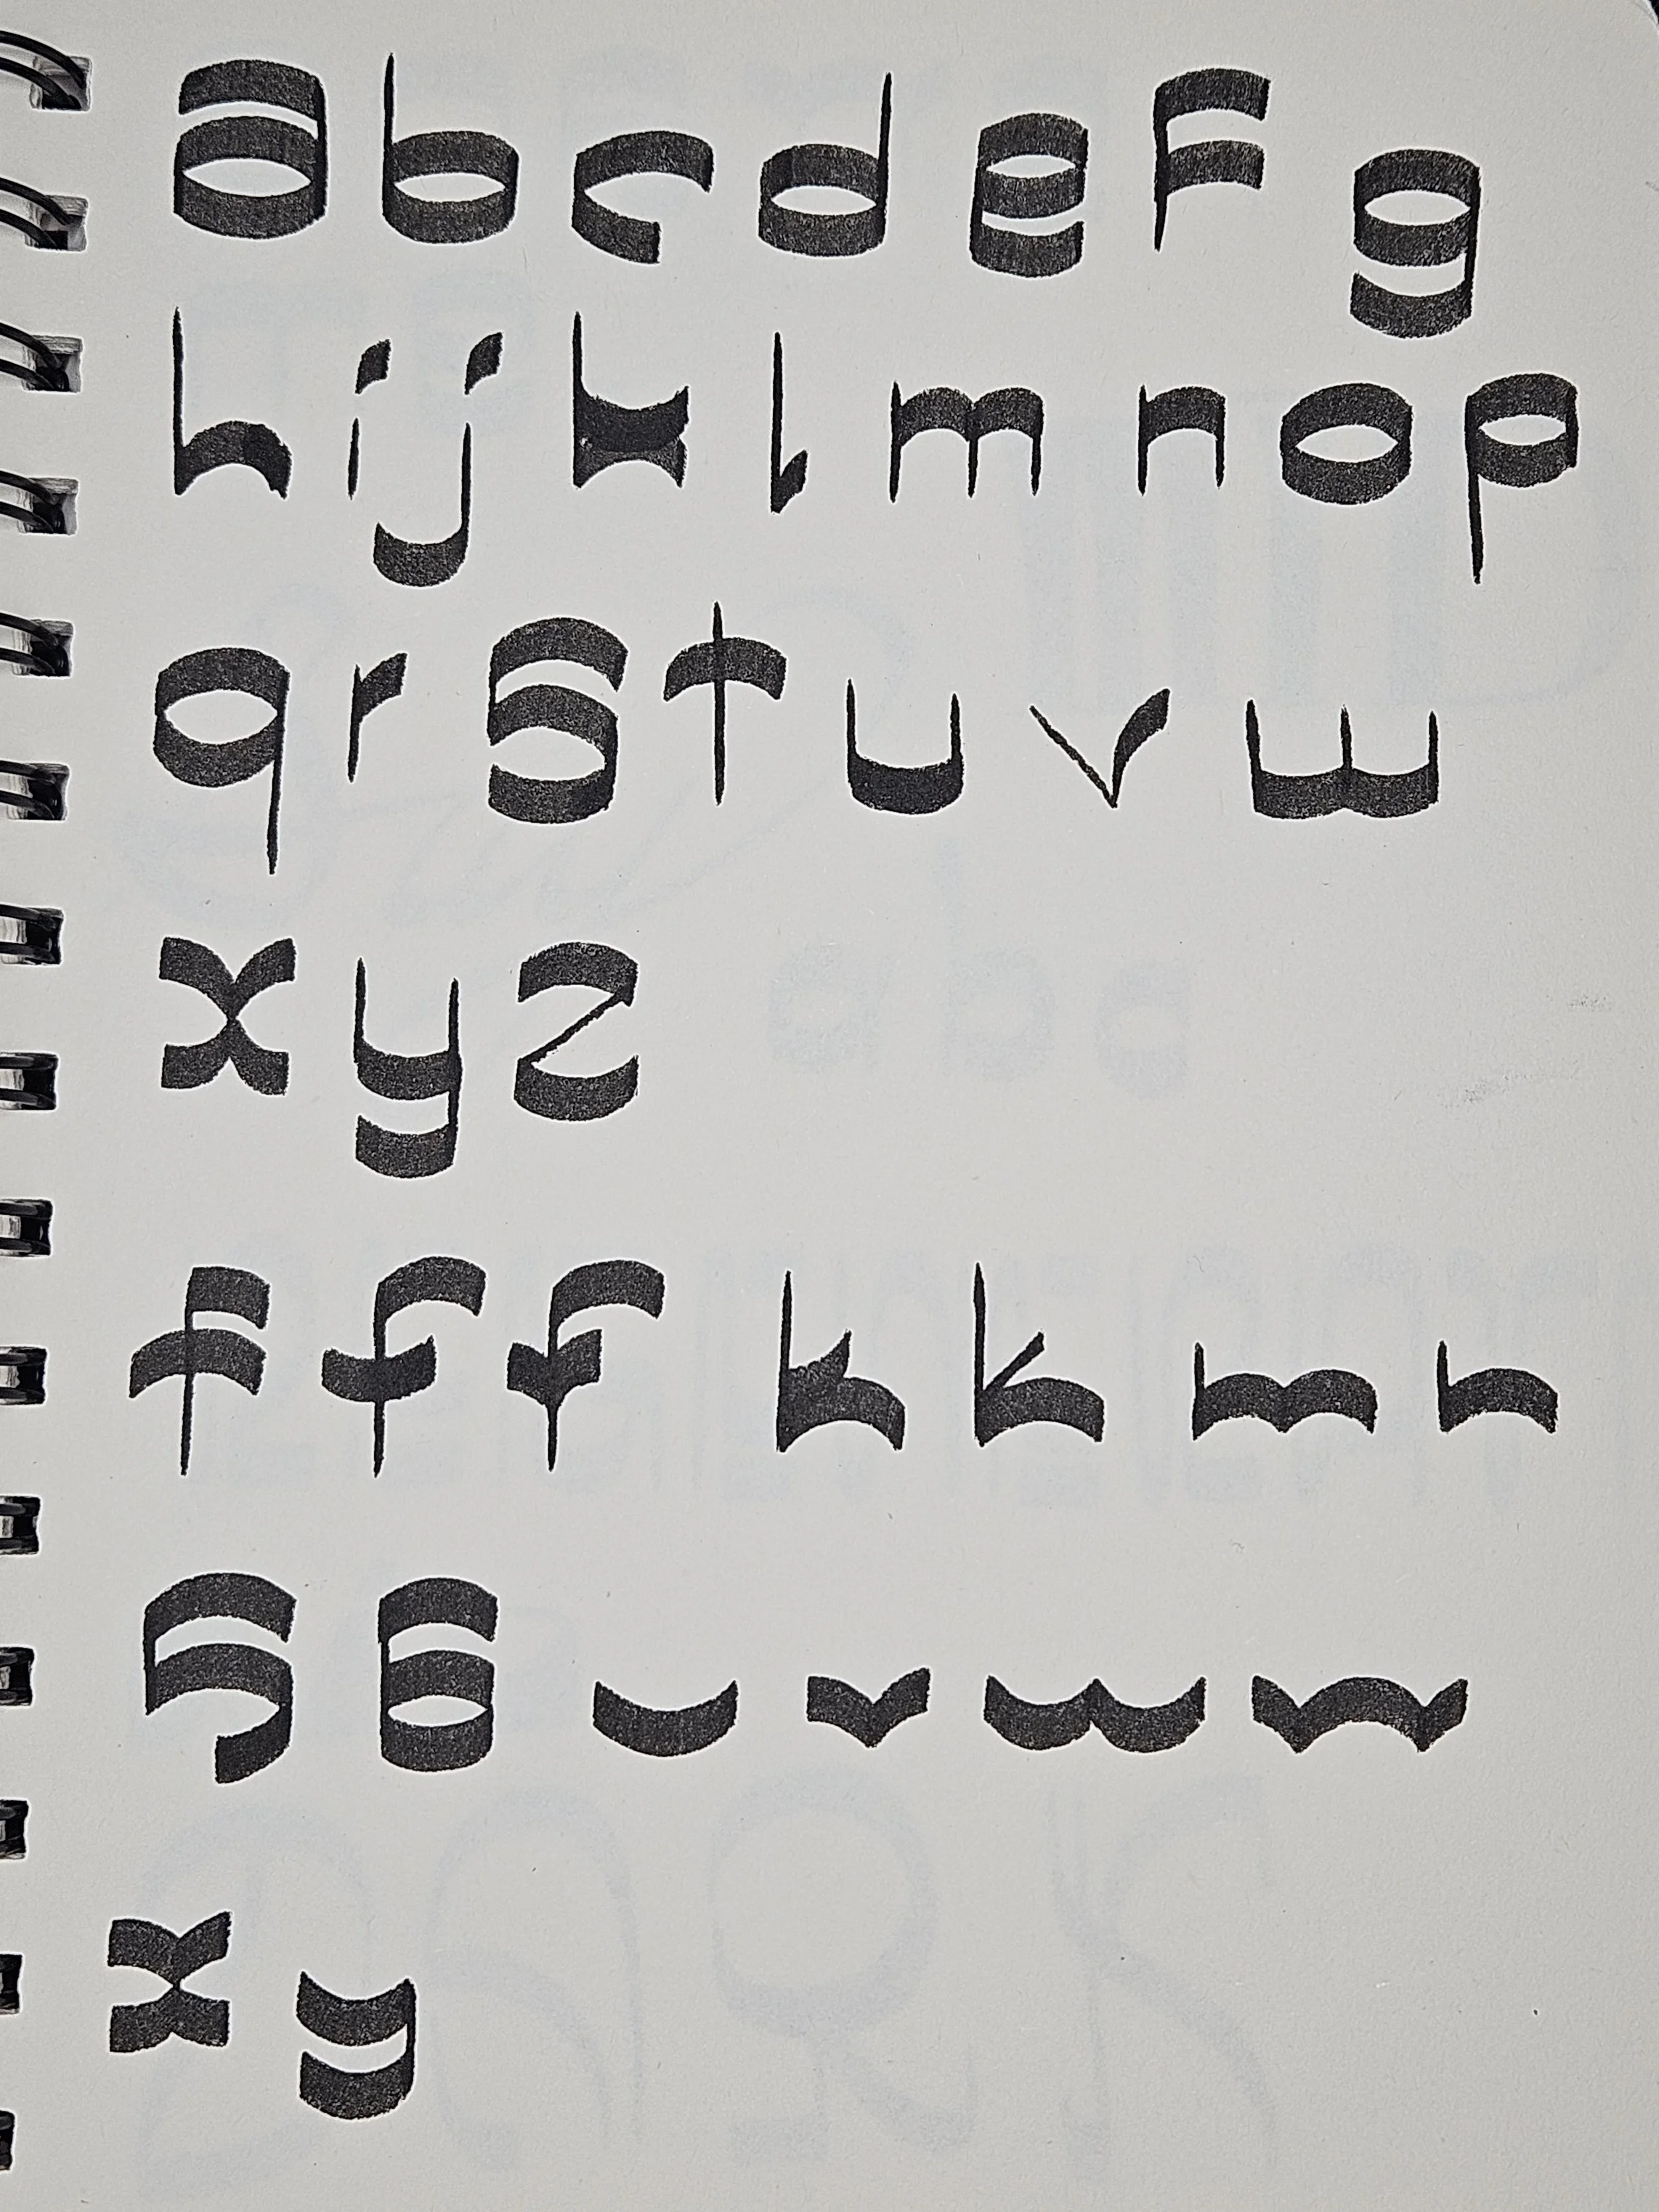 a b c d e f g
h i j k l m n o p
q r s t u v w
x y z
f f f k k m n
s
x y